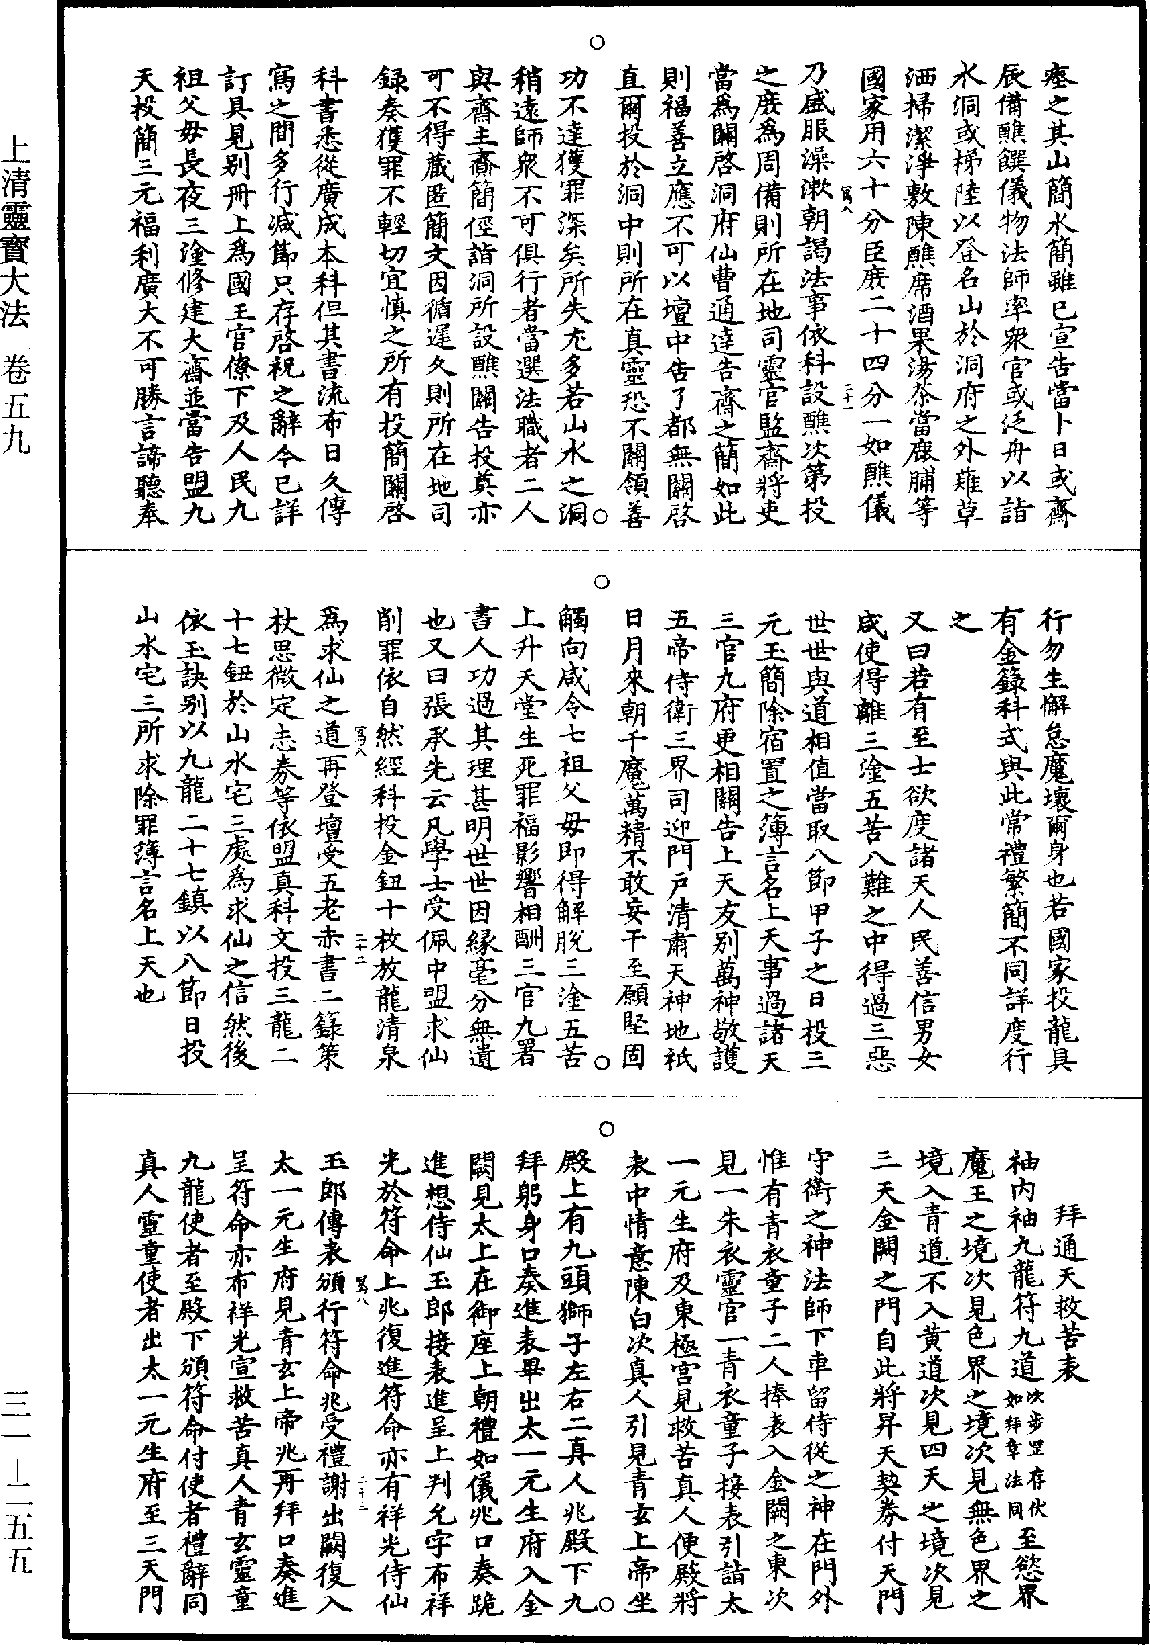 上清靈寶大法 卷五九
三一－二五五
瘞之其山簡水簡雖已宣告當卜日或齋
辰備醮饌儀物法師率衆官或泛舟以詣
水洞或梯陸以登名山於洞府之外薙草
洒掃潔淨敷陳醮席酒果湯茶當鹿脯等
國家用六十分臣庶二十四分一如醮儀
乃盛服澡漱朝謁法事依科設醮次第投
之庶為周備則所在地司靈官監齋將吏
當為關啓洞府仙曹通達告齋之簡如此
則福善立應不可以壇中告了都無關啓
直爾投於洞中則所在真靈恐不關領善
功不達獲罪深矣所失尤多若山水之洞
稍遠師衆不可俱行者當選法職者二人
與齋主齎簡徑詣洞所設醮關告投奠亦
可不得藏匿簡文因循遲久則所在地司
録奏獲罪不輕切宜慎之所有投簡關啓
科書悉從廣成本科但其書流布日久傳
寫之間多行減節只存啓祝之辭今已詳
訂具見别冊上為國王官僚下及人民九
祖父母長夜三塗修建大齋並當告盟九
天投簡三元福利廣大不可勝言諦聽奉
行勿生懈怠魔壞爾身也若國家投龍具
有金籙科式與此常禮繁簡不同詳度行
之
又曰若有至士欲度諸天人民善信男女
咸使得離三塗五苦八難之中得過三惡
世世與道相值當取八節甲子之日投三
元玉簡除宿置之簿言名上天事過諸天
三官九府更相關告上天友别萬神敬護
五帝侍衛三界司迎門户清肅天神地祇
日月來朝千魔萬精不敢妄干至願堅固
觸向咸令七祖父母即得解脫三塗五苦
上升天堂生死罪福影響相酬三官九署
書人功過其理甚明世世因緣毫分無遺
也又曰張承先云凡學士受佩中盟求仙
削罪依自然經科投金鈕十枚放龍清泉
為求仙之道再登壇受五老赤書二籙策
杖思微定志券等依盟真科文投三龍二
十七鈕於山水宅三處為求仙之信然後
依玉訣别以九龍二十七鎮以八節日投
山水宅三所求除罪簿言名上天也
拜通天救苦表
袖内袖九龍符九道次步罡存伏如拜章法同至慾界
魔王之境次見色界之境次見無色界之
境入青道不入黃道次見四天之境次見
三天金闕之門自此將昇天契券付天門
守衛之神法師下車留侍從之神在門外
惟有青衣童子二人捧表入金闕之東次
見一朱衣靈官一青衣童子接表引詣太
一元生府及東極宮見救苦真人便殿將
表中情意陳白次真人引見青玄上帝坐
殿上有九頭獅子左右二真人兆殿下九
拜躬身口奏進表畢出太一元生府入金
闕見太上在御座上朝禮如儀兆口奏跪
進想侍仙玉郎接表進呈上判允字布祥
光於符命上兆復進符命亦有祥光侍仙
玉郎傳表頒行符命兆受禮謝出闕復入
太一元生府見青玄上帝兆再拜口奏進
呈符命亦布祥光宣救苦真人青玄靈童
九龍使者至殿下頒符命付使者禮辭同
真人靈童使者出太一元生府至三天門